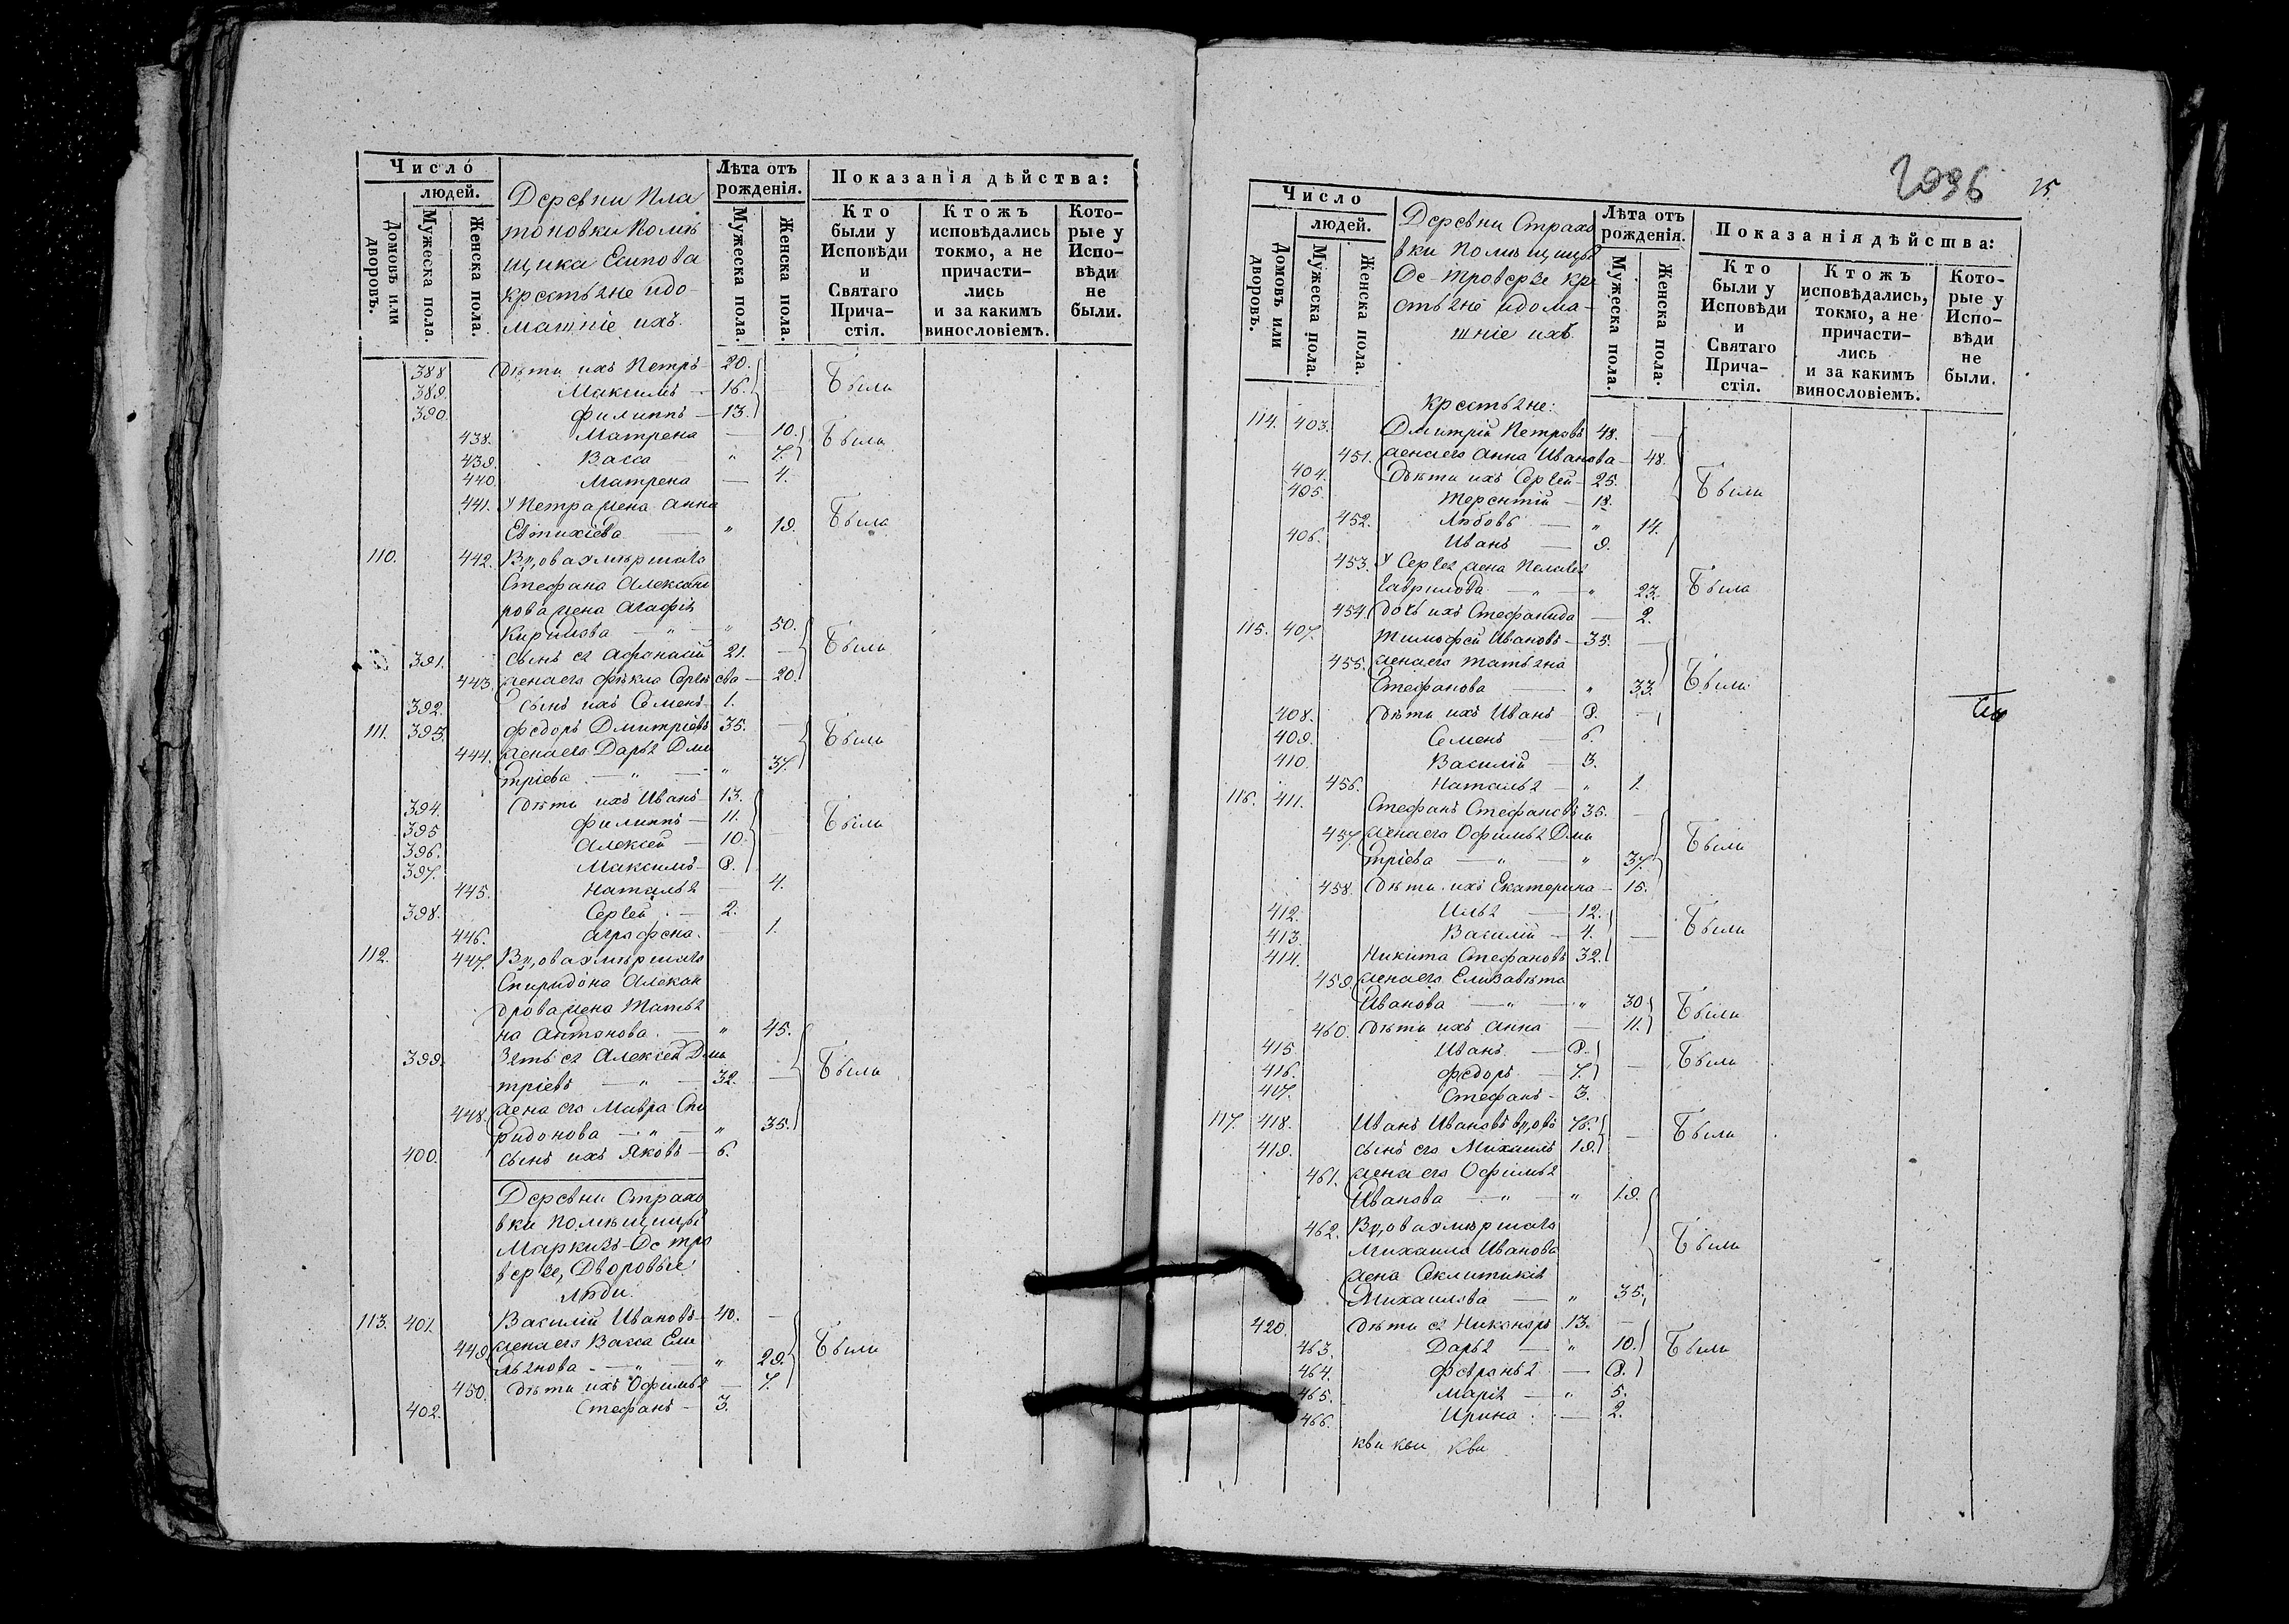 Число
людей.
Домовъ или дворовъ.
Мужеска пола.
Женска пола.
Деревни Пла
тоновки Помѣ
щика Есипова
крестьяне идо-
машніе ихъ.
Лѣта отъ
рожденія.
Мужеска пола.
Женска пола.
Показанія дѣйства:
Кто
были у
Исповѣди
и
Святаго
Прича-
стія.
Ктожъ
исповѣдались
токмо, а не
причасти-
лись
и за какимъ
винословіемъ.
Кото-
рые у
Испо-
вѣди
не
были.
388 дѣти ихъ Петръ 20.
389. Максимъ 16. Были
390. Филиппъ 13.
438. Матрена 10. Были
439. Васса " 7.
440. Матрена 4.
441. У Петра жена Анна
Евтихіева " 19. Была
110. 442. Вдова умершаго
Стефана Александ
рова жена Агафія
Кирилова " " 50.
391. сынъ ея Афонасій 21. Были
443. жена его Фекла Сергѣева 20.
392. сынъ ихъ Семенъ 1.
111. 393. Федоръ Дмитріевъ 35.
444. жена его Дарья Дми Были
тріева " " 37.
394. дѣти ихъ Иванъ 13.
395 Филиппъ 11. Были
396. Алексей 10.
397. Максимъ 8.
445. Наталья 4.
398. Сергей 2.
446. Аграфена. 1.
112. 447. Вдова умершаго
Спиридона Алексан
дрова жена Татья
на Антонова. " 45.
399. Зять ея Алексей Дми
тріевъ " 32. Были
448. жена его Мавра Спи
ридонова " " 35.
400. сынъ ихъ Яковъ 6.
Деревни Страхо
вки помѣщицы
Маркизъ-Де тра
версе, Дворовые
люди.
113. 401. Василій Ивановъ 40.
449. жена его Васса Еми
льянова " " 29. Были
450. дѣти ихъ Офимья 7.
402. Стефанъ 3.
2096
25.
Число
людей.
Домовъ или дворовъ.
Мужеска пола.
Женска пола.
Деревни Страхо
вки помѣщицы
Де-Траверзе кре
стьяне идома-
шніе ихъ.
Лѣта отъ
рожденія.
Мужеска пола.
Женска пола.
Показанія дѣйства:
Кто
были у
Исповѣди
и
Святаго
Прича-
стія.
Ктожъ
исповѣдались,
токмо, а не
причасти-
лись
и за какимъ
винословіемъ.
Кото-
рые у
Испо-
вѣди
не
были.
Крестьяне:
114. 403. Дмитрій Петровъ 48.
451. жена его Анна Иванова 48.
404. дѣти ихъ Сергей 25. Были
405. Терентій 18.
452. Любовь " 14.
406. Иванъ 9.
453. У Сергея жена Пелагея
Гаврилова " " 23. Была
454. дочь ихъ Стефанида 2.
115. 407. Тимофей Ивановъ 35.
455. жена его Татьяна
Стефанова " 33. Были
408. дѣти ихъ Иванъ 8.
409. Семенъ 6.
410. Василій 3.
456. Наталья " 1.
116. 411. Стефанъ Стефановъ 35.
457. жена его Офимья Дми Были
тріева " " 37.
458. дѣти ихъ Екатерина 15.
412. Илья 12. Были
413. Василій 4.
414. Никита Стефановъ 32.
459. жена его Елизавѣта
Иванова " " 30 Были
460. дѣти ихъ Анна 11.
415. Иванъ 8. Были
416. Федоръ 7.
417. Стефанъ 3.
117. 418. Иванъ Ивановъ вдовъ 76. Были
419. сынъ его Михаилъ 19.
461. жена его Офимья
Иванова " " 19.
462. Вдова умершаго
Михаила Иванова Были
жена Секлитикія
Михаилова " 35.
420. дѣти ея Никаноръ 13.
463. Дарья " 10. Были
464. Февронья 8.
465. Марія " 5.
466. Ирина. 2.